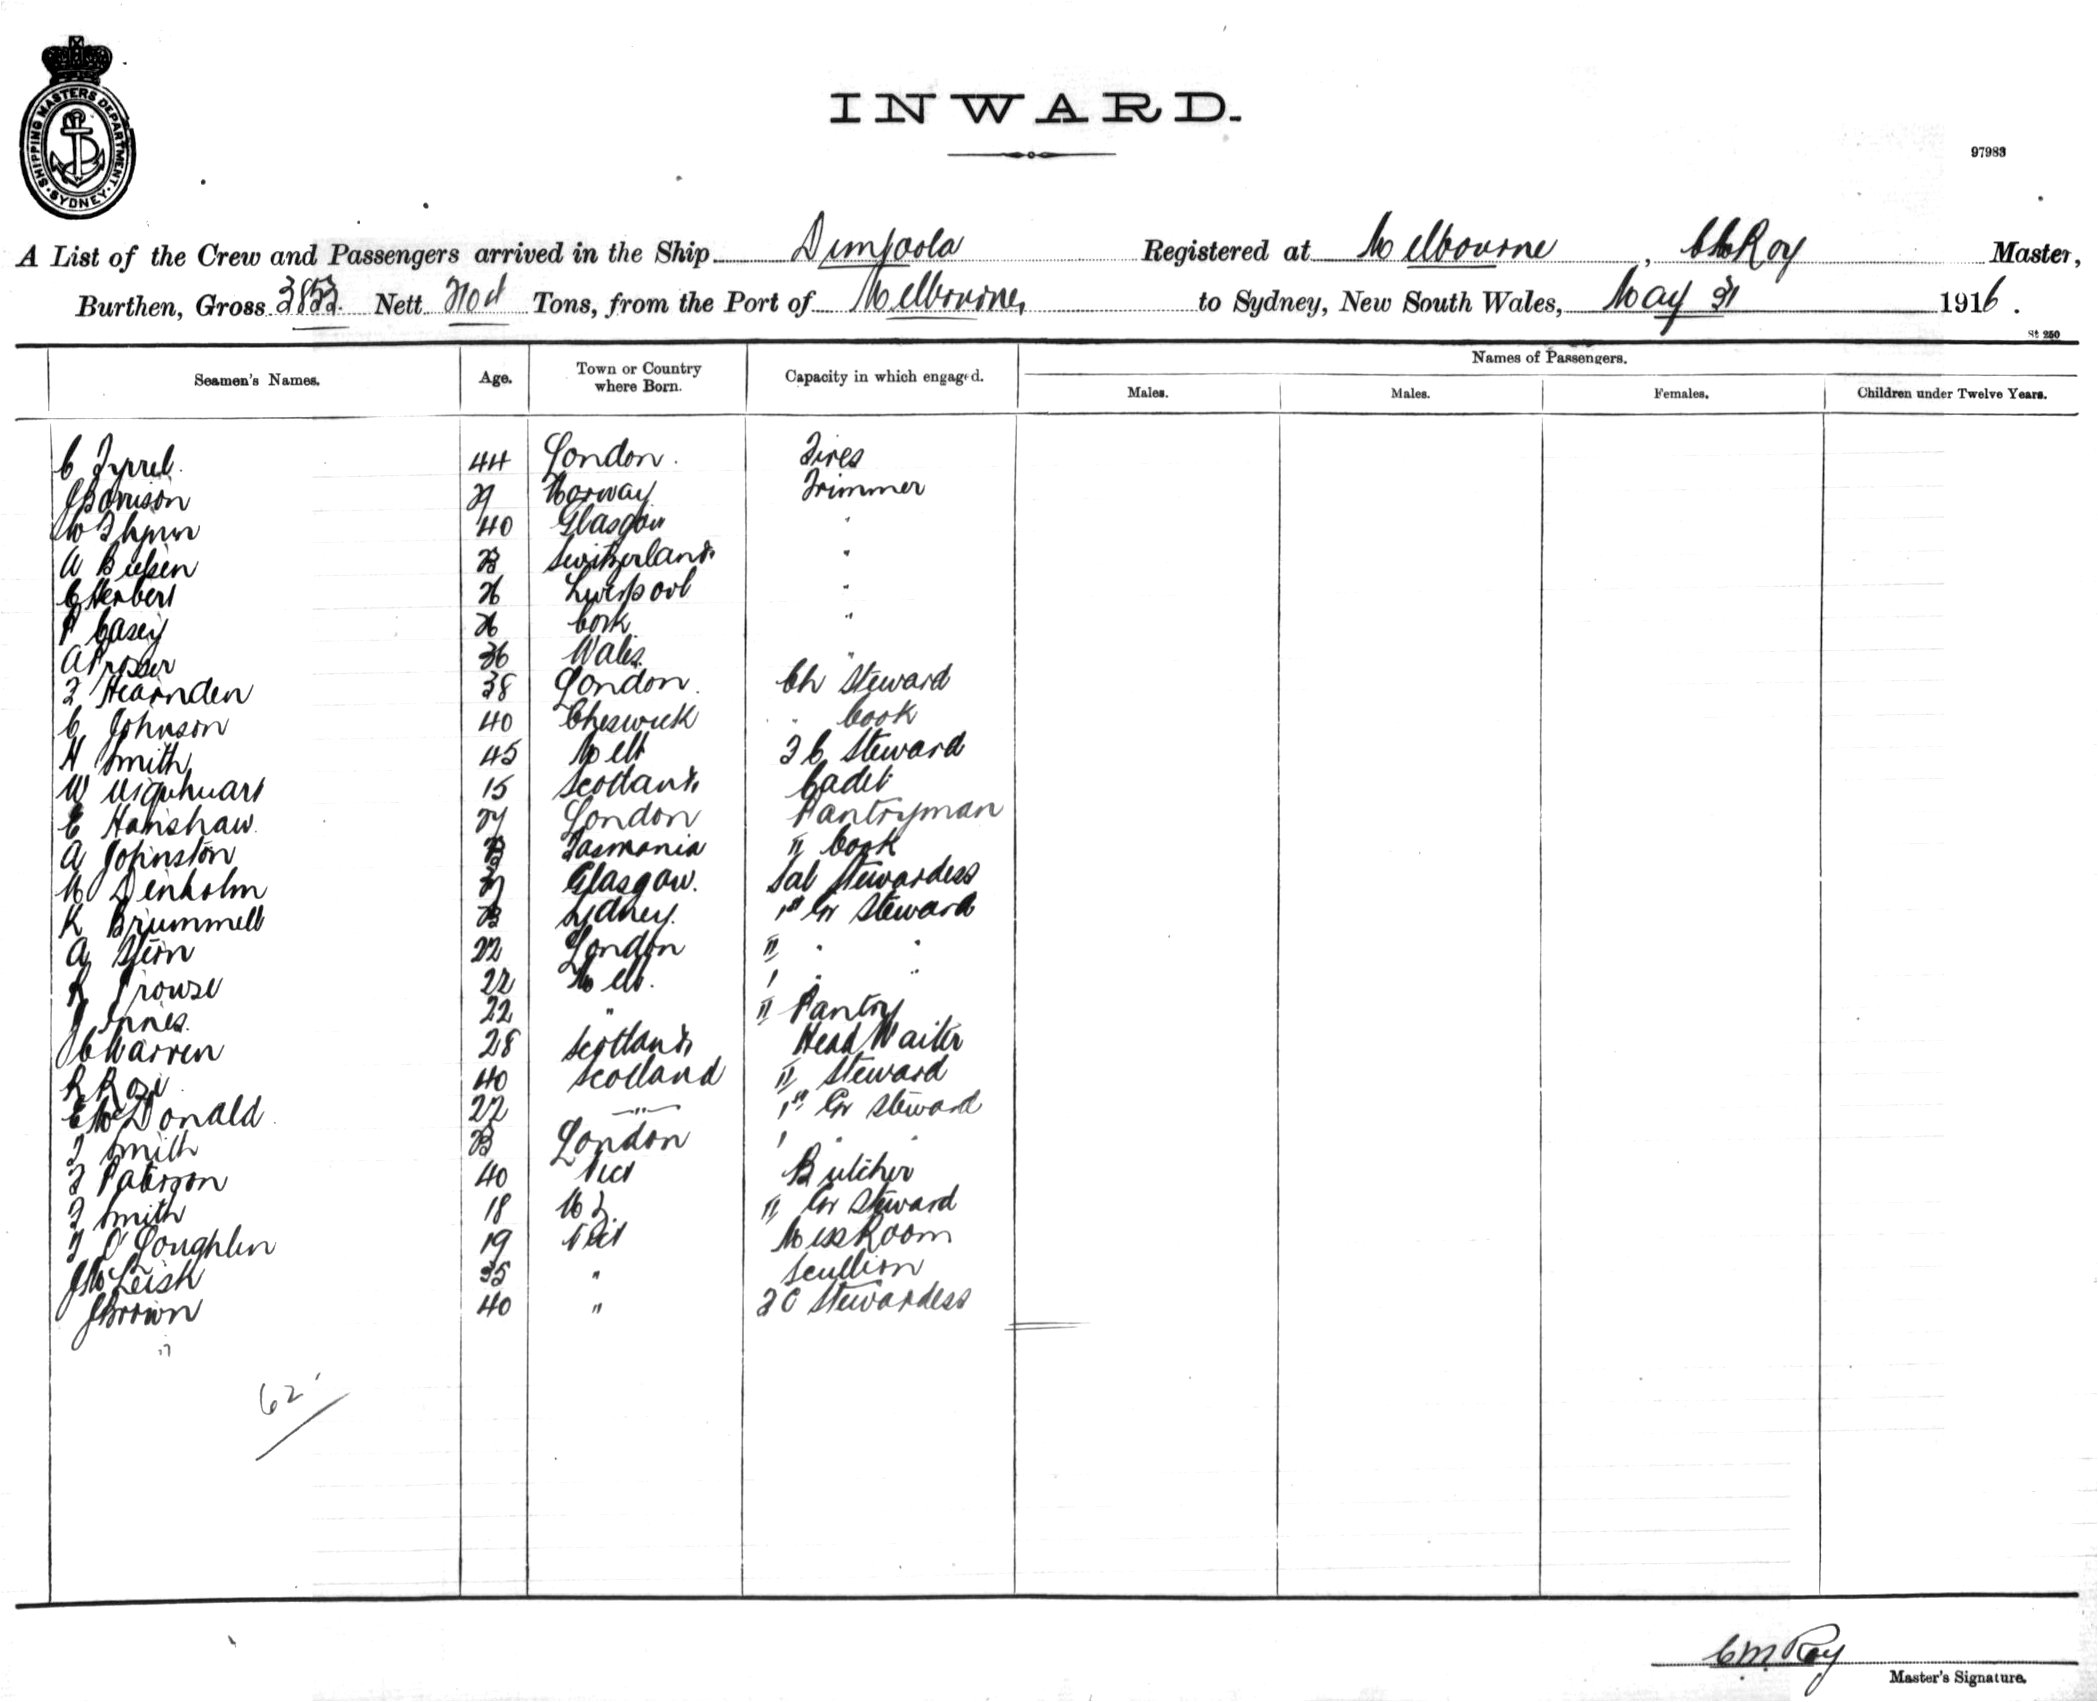 SHIPPING MASTERS DEPARTMENT · SYDNEY ·
INWARD.
97983
A List of the Crew and Passengers arrived in the Ship Dimboola Registered at Melbourne, C M Roy Master,
Burthen, Gross 3853 Nett Tons, from the Port of Melbourne, to Sydney, New South Wales, May 31 1916.
St 250
Seamen's Names. Age. Town or Country where Born. Capacity in which engaged. Names of Passengers.
Males. Males. Females. Children under Twelve Years.
C Tyrrel. 44 London. Fires
Norway Trimmer
W Flynn 40 Glasgow "
A 23 Switzerland "
C Herbert 26 Liverpool "
P Casey 26 Cork "
A Prosser 36 Wales "
F Hearnden 38 London. Ch Steward
C Johnson 40 Cheswick " Cook
H Smith 45 Melb 2 C Steward
W Urquhuart 15 Scotland Cadet
E Hanshaw London Pantryman
A Johnston 23 Tasmania II Cook
M Denholm Glasgow. Sal Stewardess
K Brummell 23 Sydney. 1st Gr Steward
A 22 London II " "
R Prouse 22 Melb. 1 " "
J Innes. 22 " II Pantry
J C Warren 28 Scotland Head Waiter
R 40 Scotland II Steward
E McDonald 22 " 1st Gr Steward
F Smith 23 London 1 " "
F Paterson 40 Vict Butcher
F Smith 18 N Z II Gr Steward
T O'Loughlin 19 Vict Mess Room
J McLeish 35 " Scullion
J Brown 40 " 2 C Stewardess
62
C M Roy
Master's Signature.